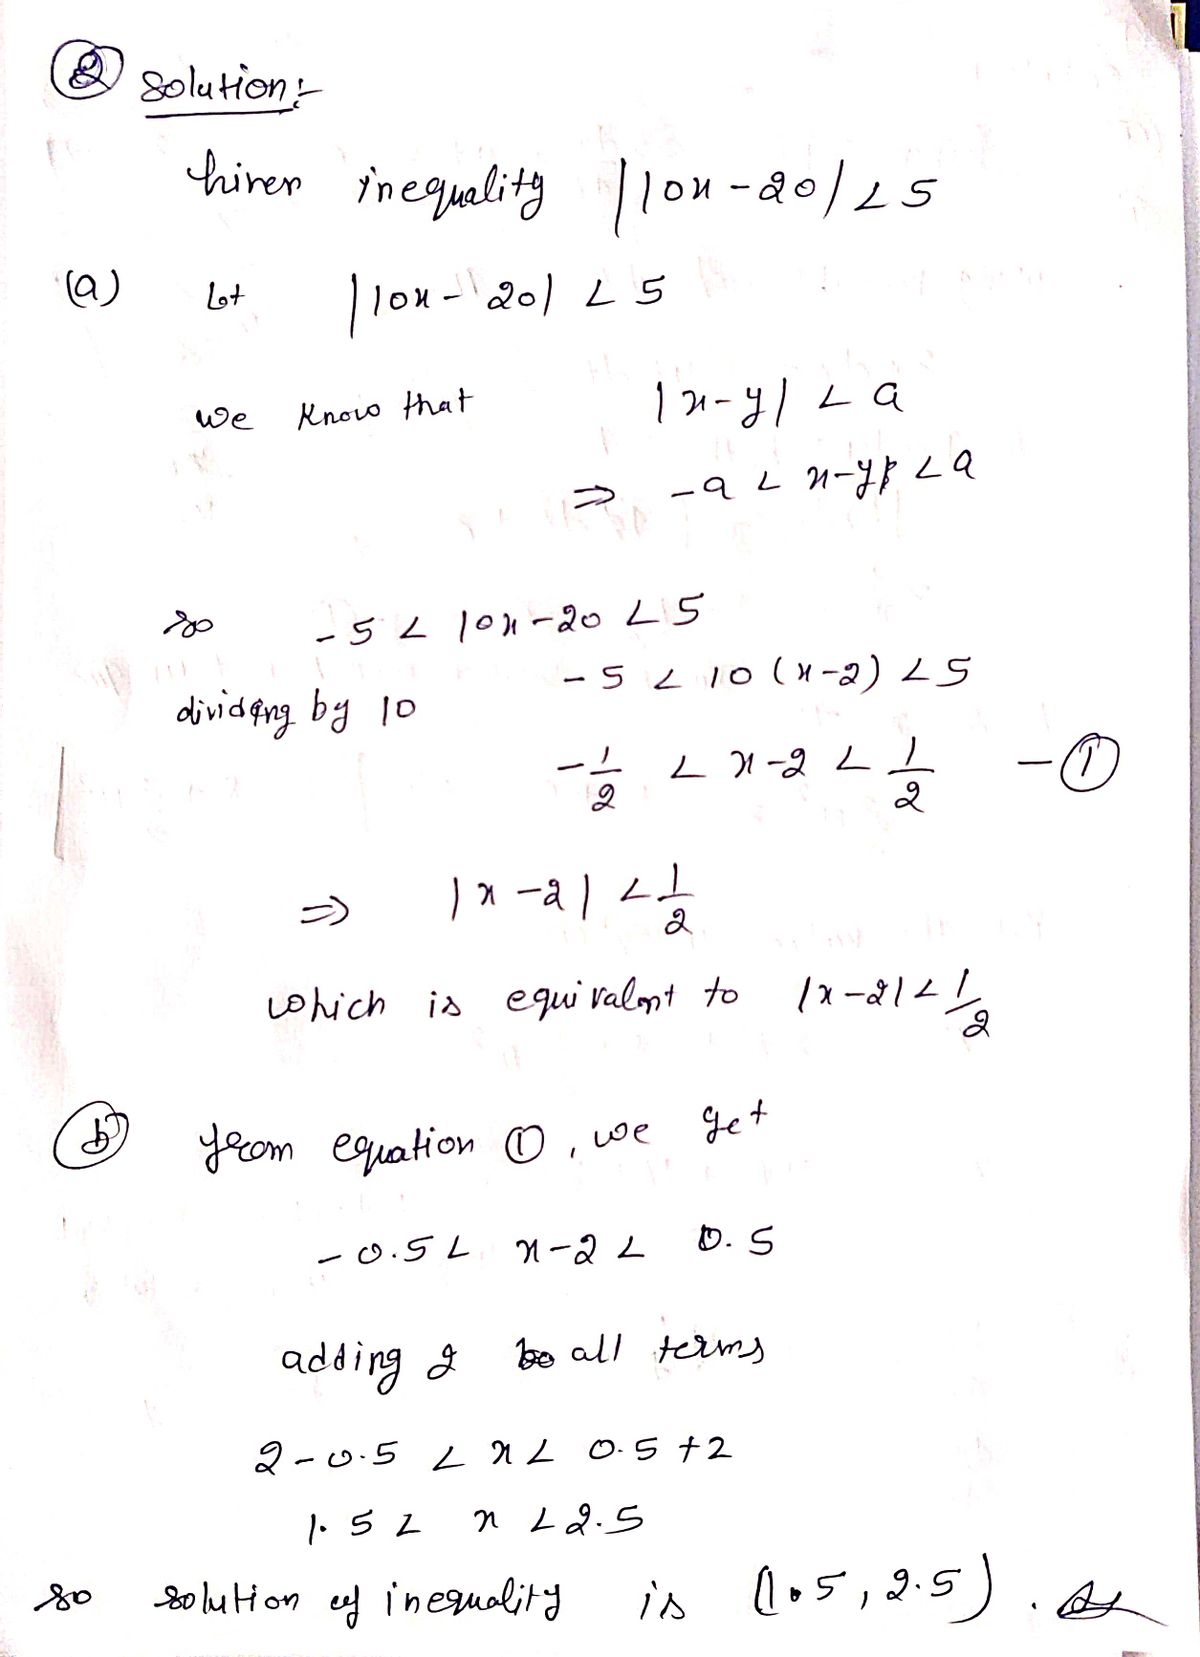 ② Solution:-
Given inequality |10x-20| < 5
(a) Let |10x-20| < 5
We Know that |x-y| < a
⇒ -a < x-y < a
so -5 < 10x-20 < 5
-5 < 10(x-2) < 5
dividing by 10
-1/2 < x-2 < 1/2 -①
⇒ |x-2| < 1/2
which is equivalent to |x-2| < 1/2
ⓑ from equation ①, we get
-0.5 < x-2 < 0.5
adding 2 to all terms
2-0.5 < x < 0.5+2
1.5 < x < 2.5
so solution of inequality is (1.5, 2.5).